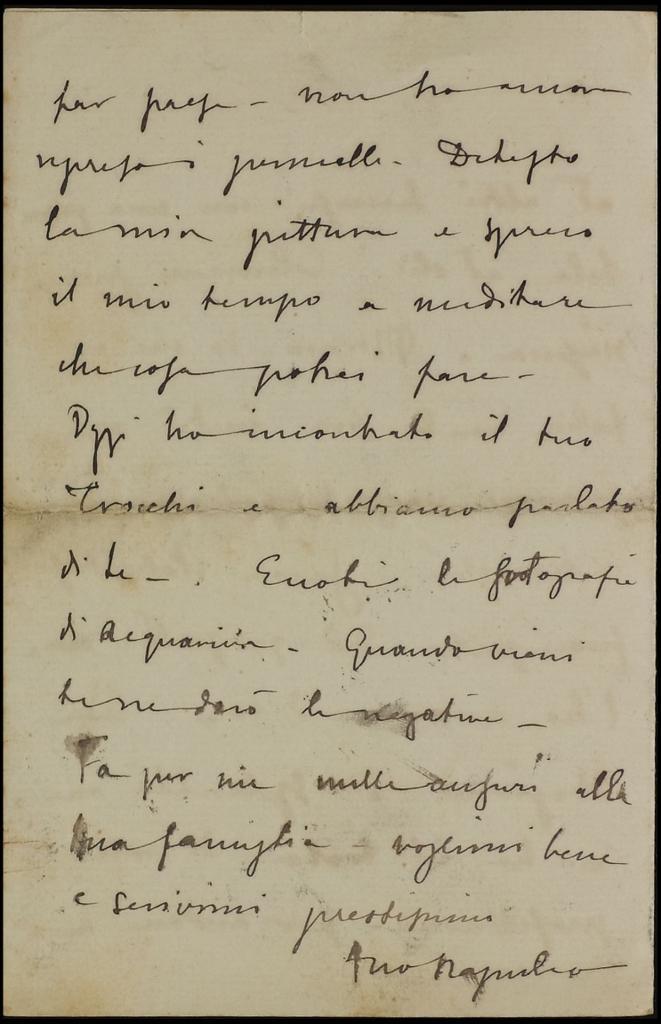 far presso - non ho ancora
ripreso i pennelli - Detesto
la mia pittura e spreco
il mio tempo a meditare
che cosa potrei fare -
Oggi ho incontrato il tuo
Trocchi e abbiamo parlato
di te - . Eccoti le fotografie
di Acquaviva - Quando vieni
te ne darò le negative -
Fa per me mille auguri alla
tua famiglia - voglimi bene
e scrivimi prestissimo
tuo